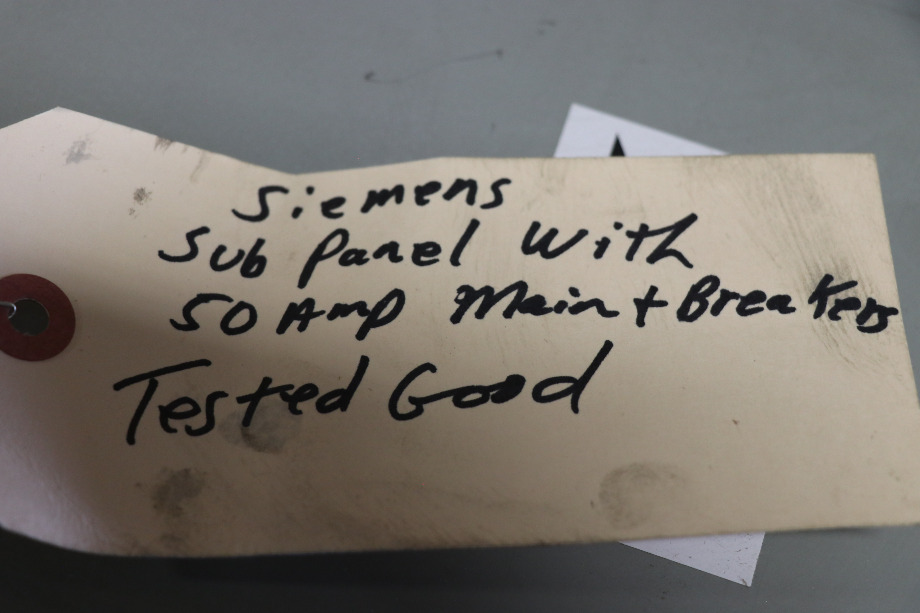 Siemens
Sub Panel With
50 Amp Main + Breakers
Tested Good